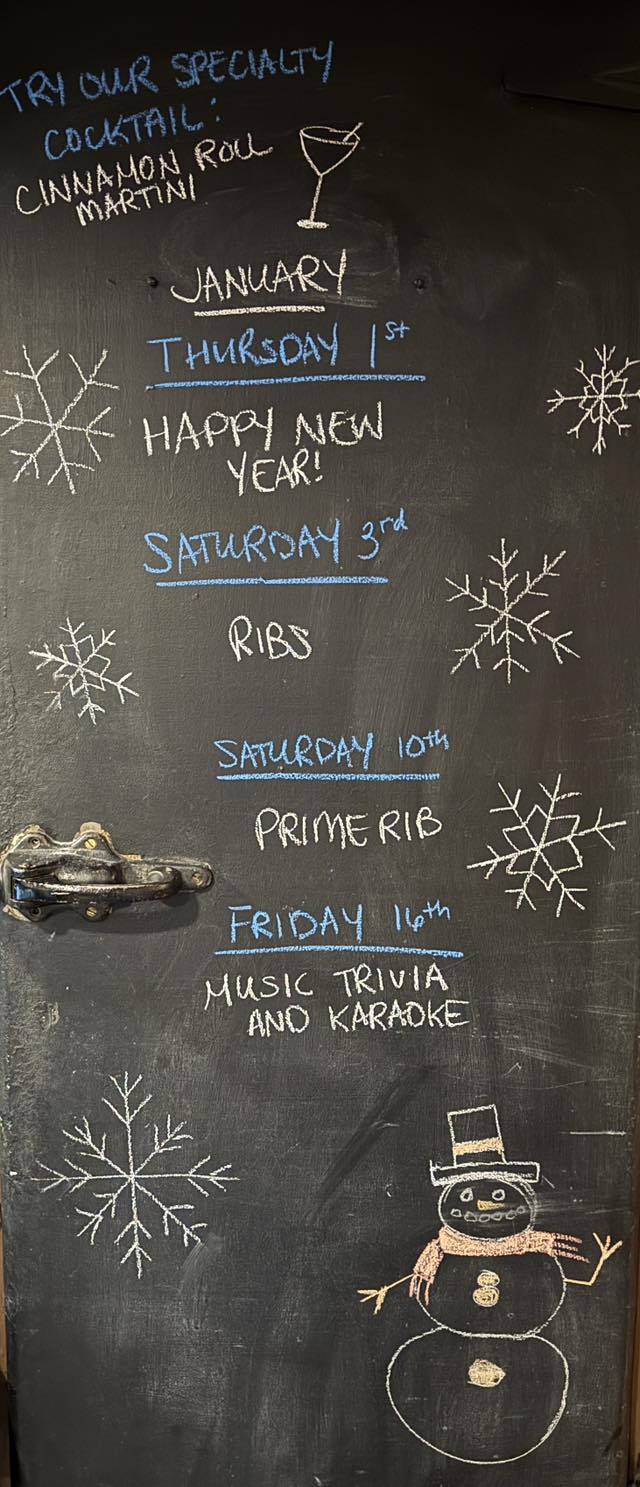 TRY OUR SPECIALTY
COCKTAIL:
CINNAMON ROLL
MARTINI
JANUARY
THURSDAY 1st
HAPPY NEW
YEAR!
SATURDAY 3rd
RIBS
SATURDAY 10th
PRIME RIB
FRIDAY 16th
MUSIC TRIVIA
AND KARAOKE